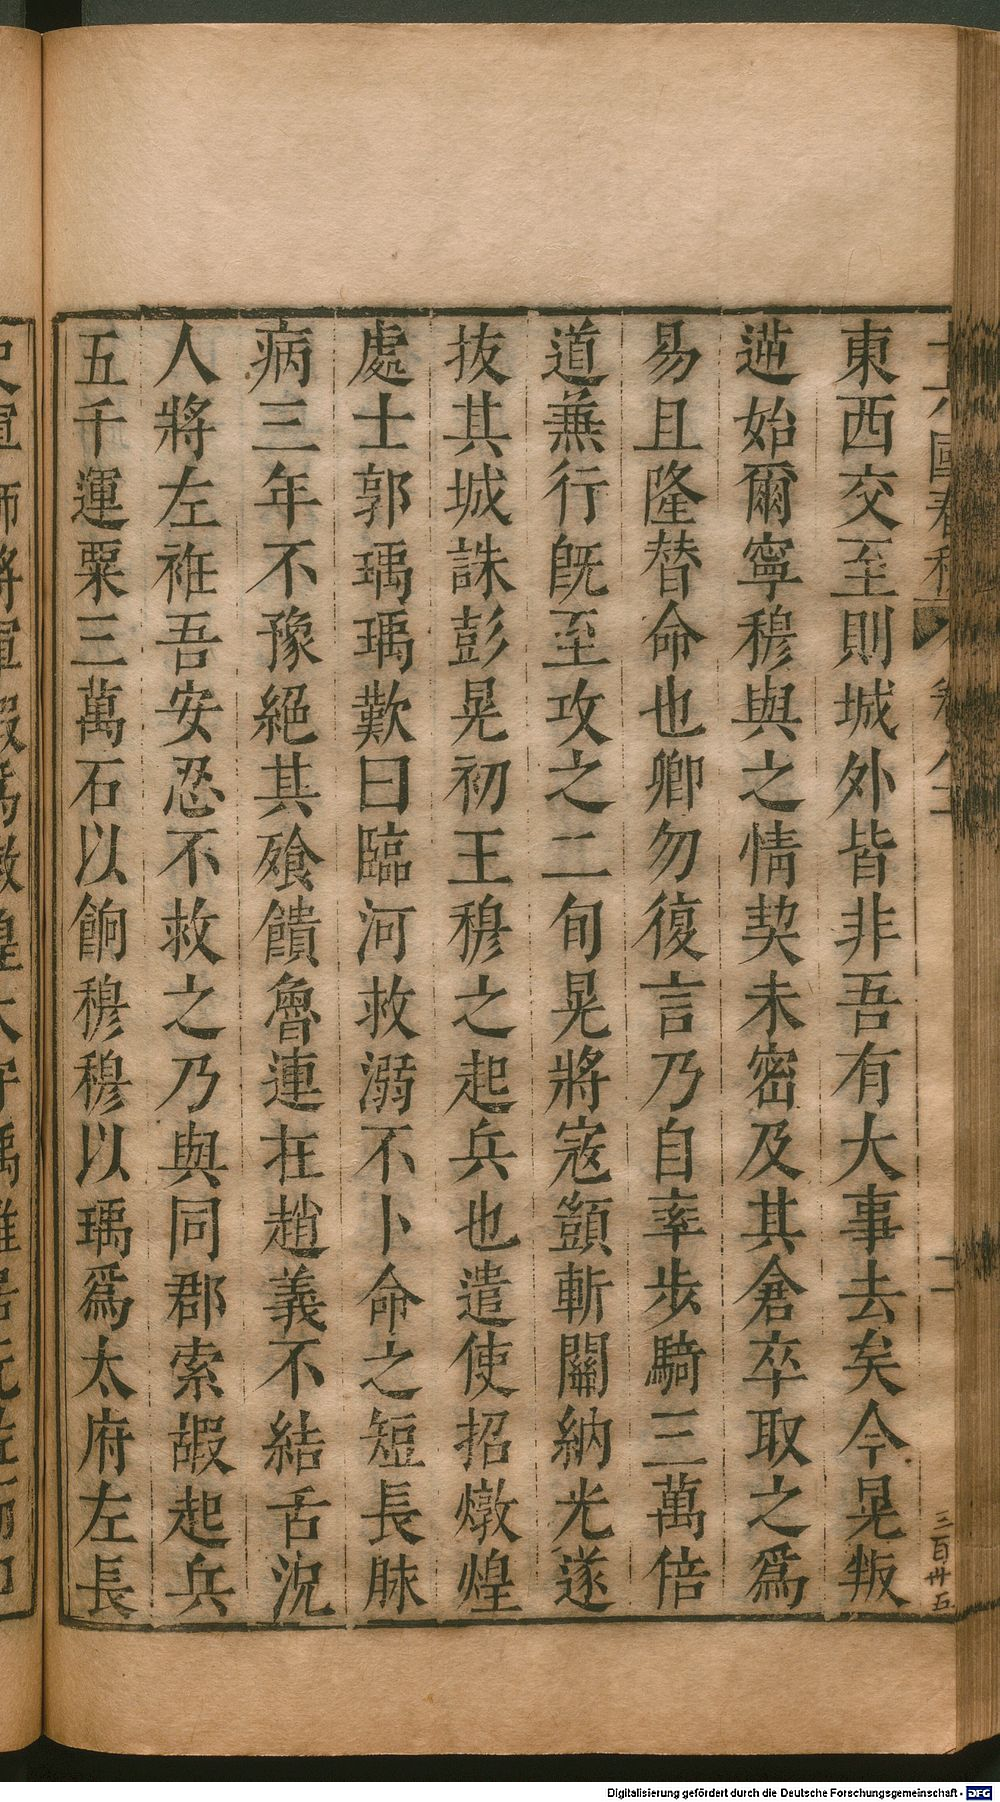 東西交至則城外皆非吾有大事去矣今晃叛
逆始爾寧穆與之情契未密及其倉卒取之爲
易且隆替命也卿勿復言乃自率步騎三萬倍
道蒹行旣至攻之二旬晃將寇顗斬關納光遂
抜其城誅彭晃初王穆之起兵也遣使招燉煌
處士郭瑀瑀歎曰臨河救溺不卜命之短長脉
病三年不豫絕其飱饋魯連在趙義不結舌況
人將左袵吾安忍不救之乃與同郡索嘏起兵
五千運粟三萬石以餉穆穆以瑀爲太府左長
三百卅五
Digitalisierung gefördert durch die Deutsche Forschungsgemeinschaft - DFG